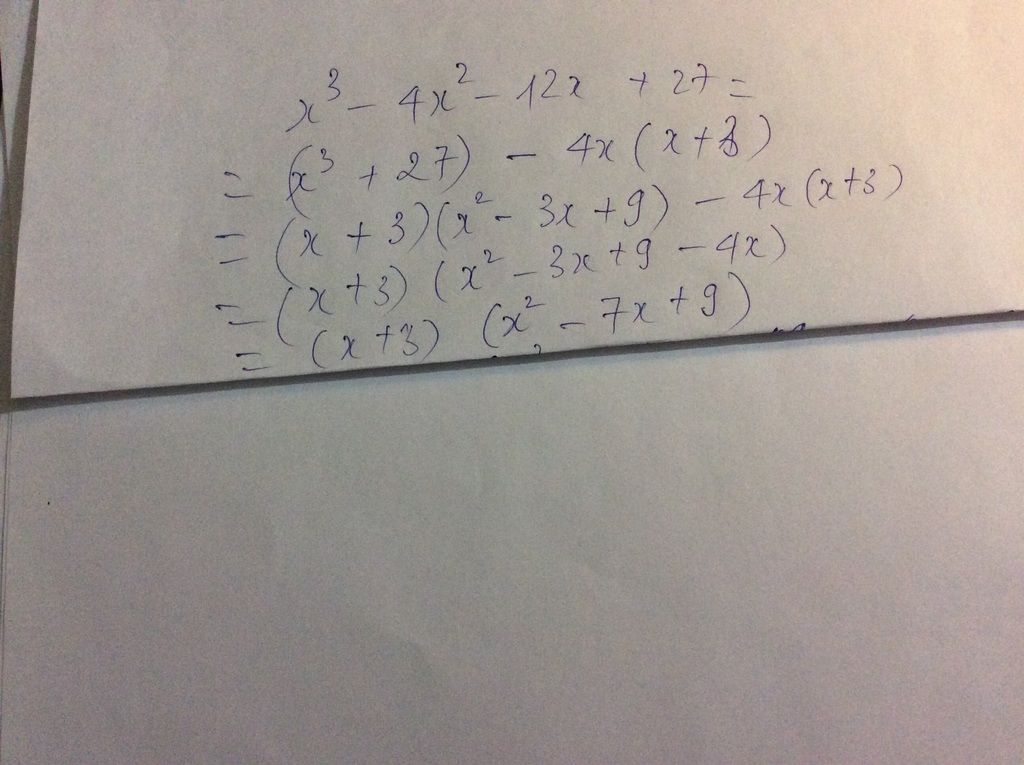 x³ - 4x² - 12x + 27 =
= (x³ + 27) - 4x (x+3)
= (x + 3)(x² - 3x + 9) - 4x (x+3)
= (x+3) (x² - 3x + 9 - 4x)
= (x+3) (x² - 7x + 9)